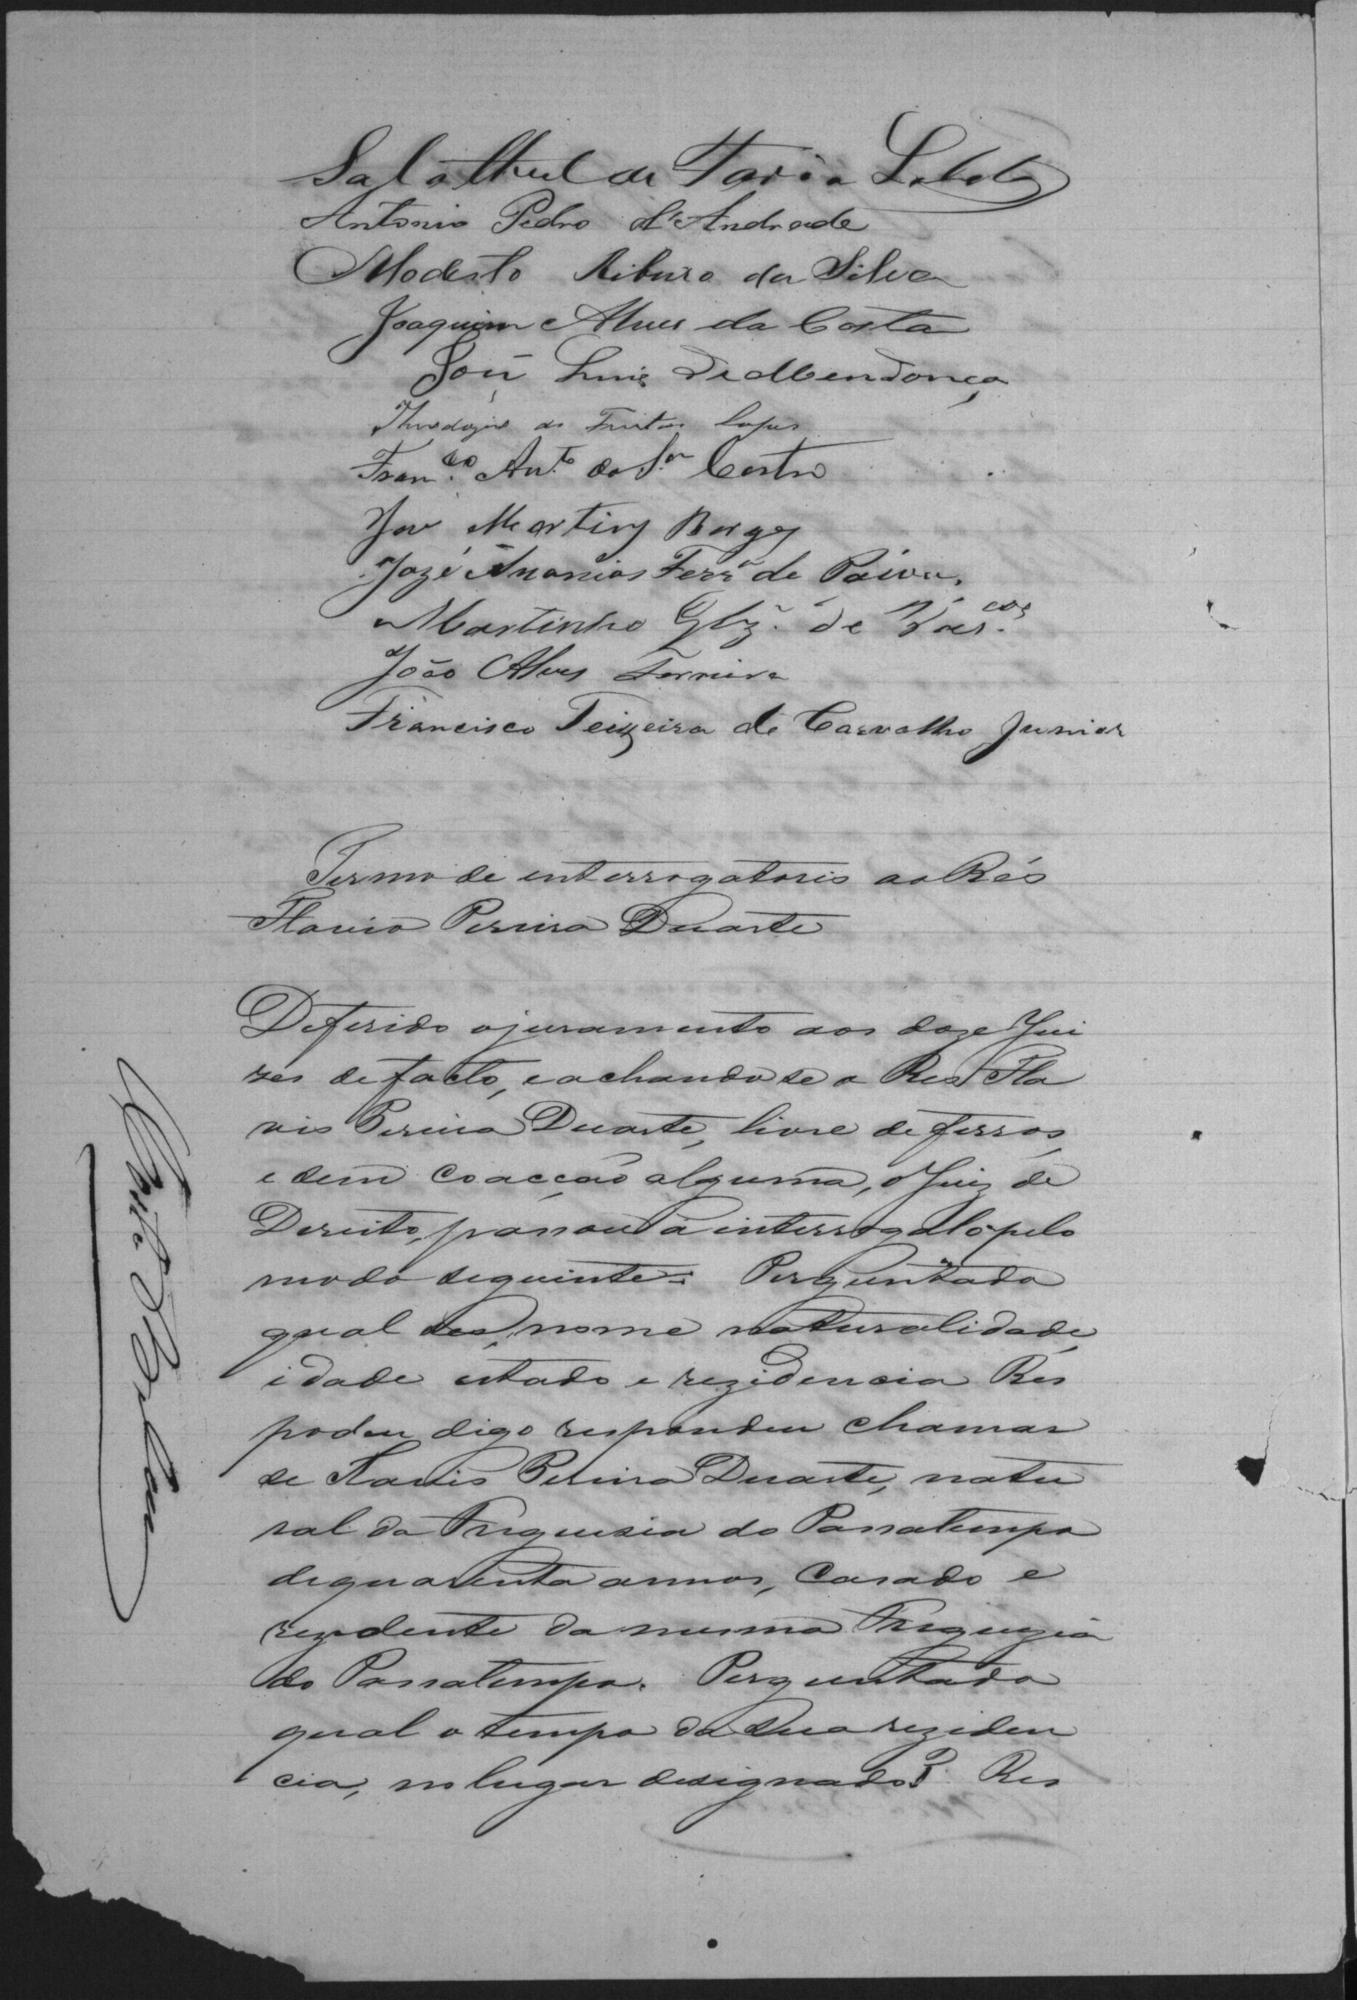 Salathiel de Faria Lobato
Antonio Pedro d'Andrade
Modesto Ribeiro da Silva
Joaquim Alves da Costa
José Luis de Mendonça
de Freitas Lopes
Fran.co Ant.o da S.a Castro
José Martins Borges
Jozé Ananias Ferr.a de Paiva.
Martinho Glz. de Vas.cos
João Alves Ferreira
Francisco Teixeira de Carvalho Junior
Termo de interrogatorio ao Réo
Flavio Pereira Duarte
Deferido o juramento aos doze Jui
zes de facto, e achando se o Reo Fla
vio Pereira Duarte, livre de ferros,
e sem coacção alguma, o Juiz de
Direito, passou a interrogalo pelo
modo seguinte: Perguntado
qual seo nome naturalidade,
idade estado e rezidencia Res
podeu digo respondeu chamar
se Flavio Pereira Duarte, natu
ral da Freguesia do Passatempo
de quarenta annos, Casado e
rezidente da mesma Freguezia
do Passatempo. Perguntado
qual o tempo da sua reziden
cia, no lugar designado? Res